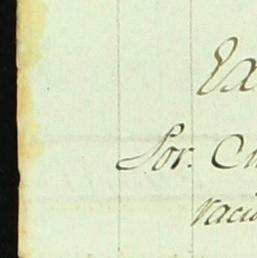 Ex
Sor. Cm
vacu